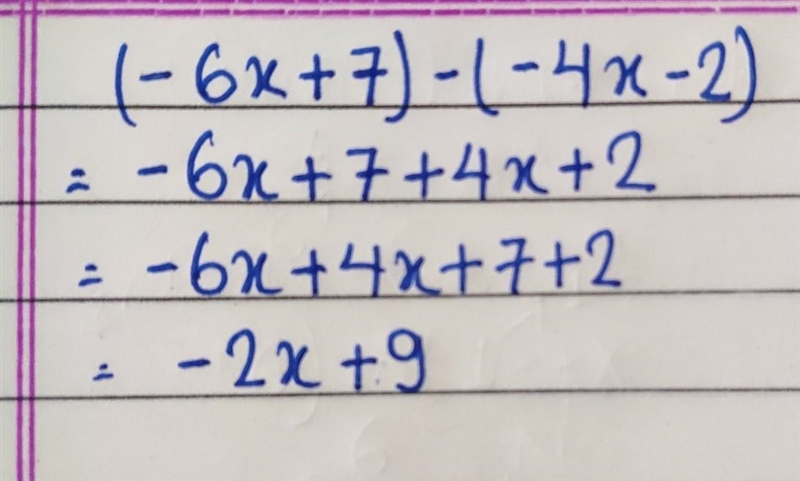 (-6x+7)-(-4x-2)
= -6x+7+4x+2
= -6x+4x+7+2
= -2x+9